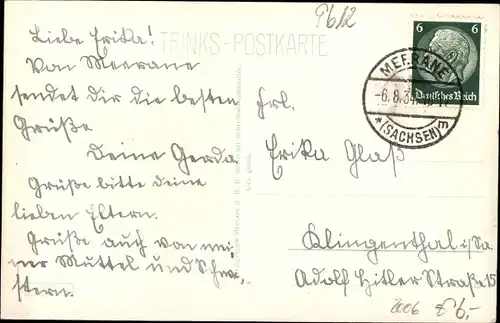 P6/2
TRINKS-POSTKARTE
Liebe Erika!
Von Meerane
sendet dir die besten
Grüße
Deine Gerda.
Grüße bitte deine
lieben Eltern.
Grüße auch von mei-
ner Muttel und Schwe-
stern.
6 6
Deutsches Reich
MEERANE
-6.8.34
*(SACHSEN) E
Frl.
Erika Glaß
Klingenthal i/Sa.
Adolf Hitler Straße 15
2006 6,-